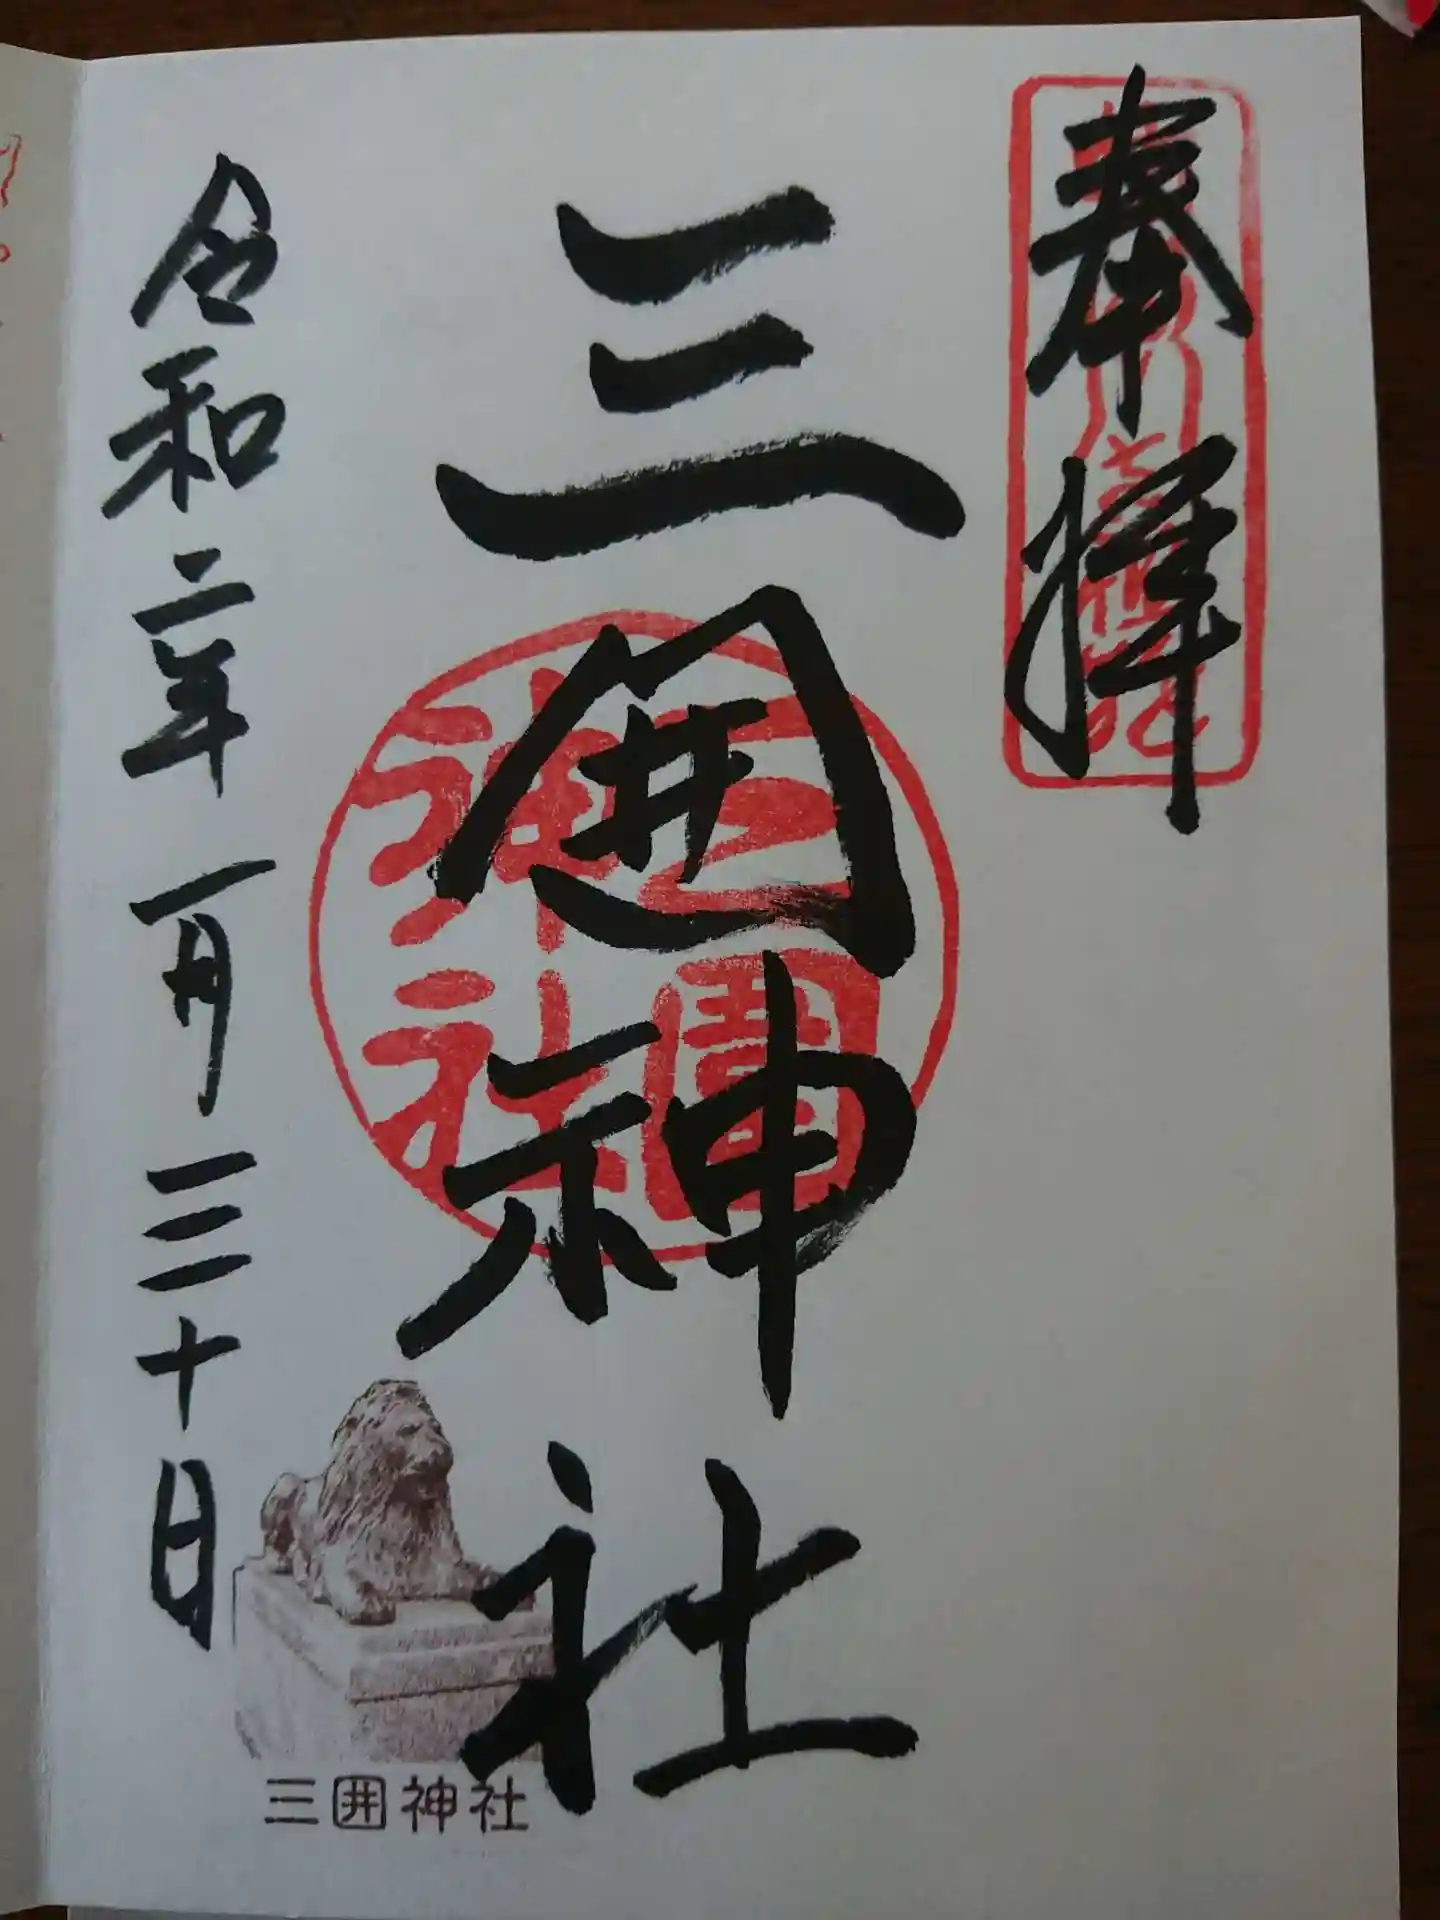 奉拝
三囲神社
三圍神社
令和二年一月三十日
三囲神社